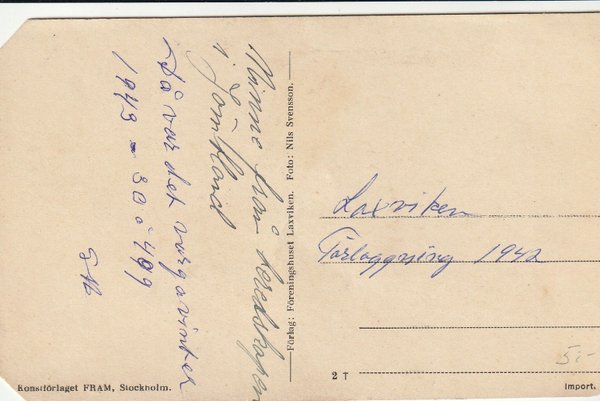 Minne från beredskapen
i Jämtland
Då var det vargavinter
1942 - 30 à 40°
Förlag: Föreningshuset Laxviken. Foto: Nils Svensson.
Laxviken
Förläggning 1942
5:-
2 T
Konstförlaget FRAM, Stockholm.
Import.